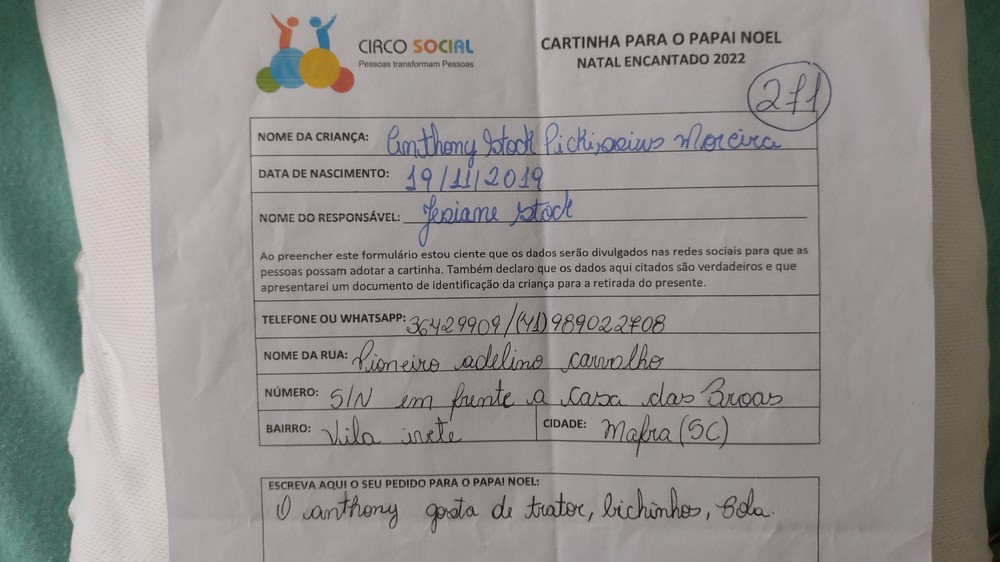 CIRCO SOCIAL
Pessoas transformam Pessoas
CARTINHA PARA O PAPAI NOEL
NATAL ENCANTADO 2022
271
NOME DA CRIANÇA: Anthony Stock Moreira
DATA DE NASCIMENTO: 19/11/2019
NOME DO RESPONSÁVEL: Jesiane Stock
Ao preencher este formulário estou ciente que os dados serão divulgados nas redes sociais para que as
pessoas possam adotar a cartinha. Também declaro que os dados aqui citados são verdadeiros e que
apresentarei um documento de identificação da criança para a retirada do presente.
TELEFONE OU WHATSAPP: 36429909/(41)989022708
NOME DA RUA: Pioneiro adelino carvalho
NÚMERO: S/N em frente a casa das Broas
BAIRRO: Vila ivete CIDADE: Mafra (SC)
ESCREVA AQUI O SEU PEDIDO PARA O PAPAI NOEL:
O anthony gosta de trator, bichinhos, Bola.